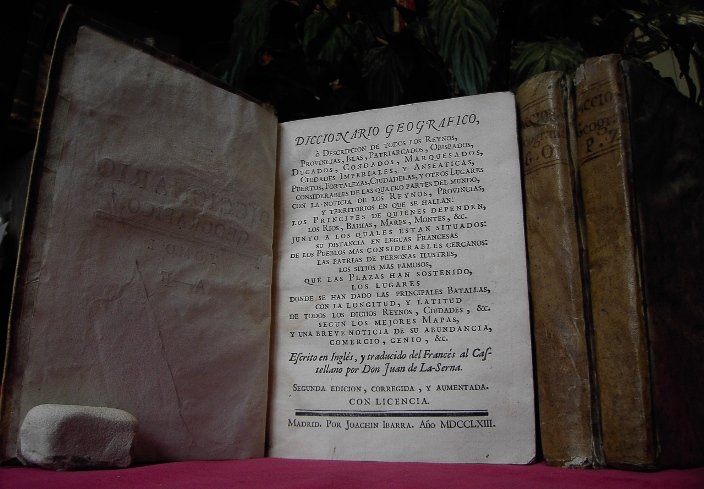 DICCIONARIO GEOGRAFICO,
ò DESCRIPCION DE TODOS LOS REYNOS,
PROVINCIAS, ISLAS, PATRIARCADOS, OBISPADOS,
DUCADOS, CONDADOS, MARQUESADOS,
CIUDADES IMPERIALES, Y ANSEATICAS,
PUERTOS, FORTALEZAS, CIUDADELAS, Y OTROS LUGARES
CONSIDERABLES DE LAS QUATRO PARTES DEL MUNDO,
CON LA NOTICIA DE LOS REYNOS, PROVINCIAS,
Y TERRITORIOS EN QUE SE HALLAN:
LOS PRINCIPES DE QUIENES DEPENDEN,
LOS RIOS, BAHIAS, MARES, MONTES, &c.
JUNTO A LOS QUALES ESTAN SITUADOS:
SU DISTANCIA EN LEGUAS FRANCESAS
DE LOS PUEBLOS MAS CONSIDERABLES CERCANOS:
LAS PATRIAS DE PERSONAS ILUSTRES,
LOS SITIOS MAS FAMOSOS,
QUE LAS PLAZAS HAN SOSTENIDO,
LOS LUGARES
DONDE SE HAN DADO LAS PRINCIPALES BATALLAS,
CON LA LONGITUD, Y LATITUD
DE TODOS LOS DICHOS REYNOS, CIUDADES, &c.
SEGUN LOS MEJORES MAPAS,
Y UNA BREVE NOTICIA DE SU ABUNDANCIA,
COMERCIO, GENIO, &c.
Escrito en Inglés, y traducido del Francés al Cas-
tellano por Don Juan de La-Serna.
SEGUNDA EDICION, CORREGIDA, Y AUMENTADA.
CON LICENCIA.
MADRID. POR JOACHIN IBARRA. Año MDCCLXIII.
G.O.
P.Z.